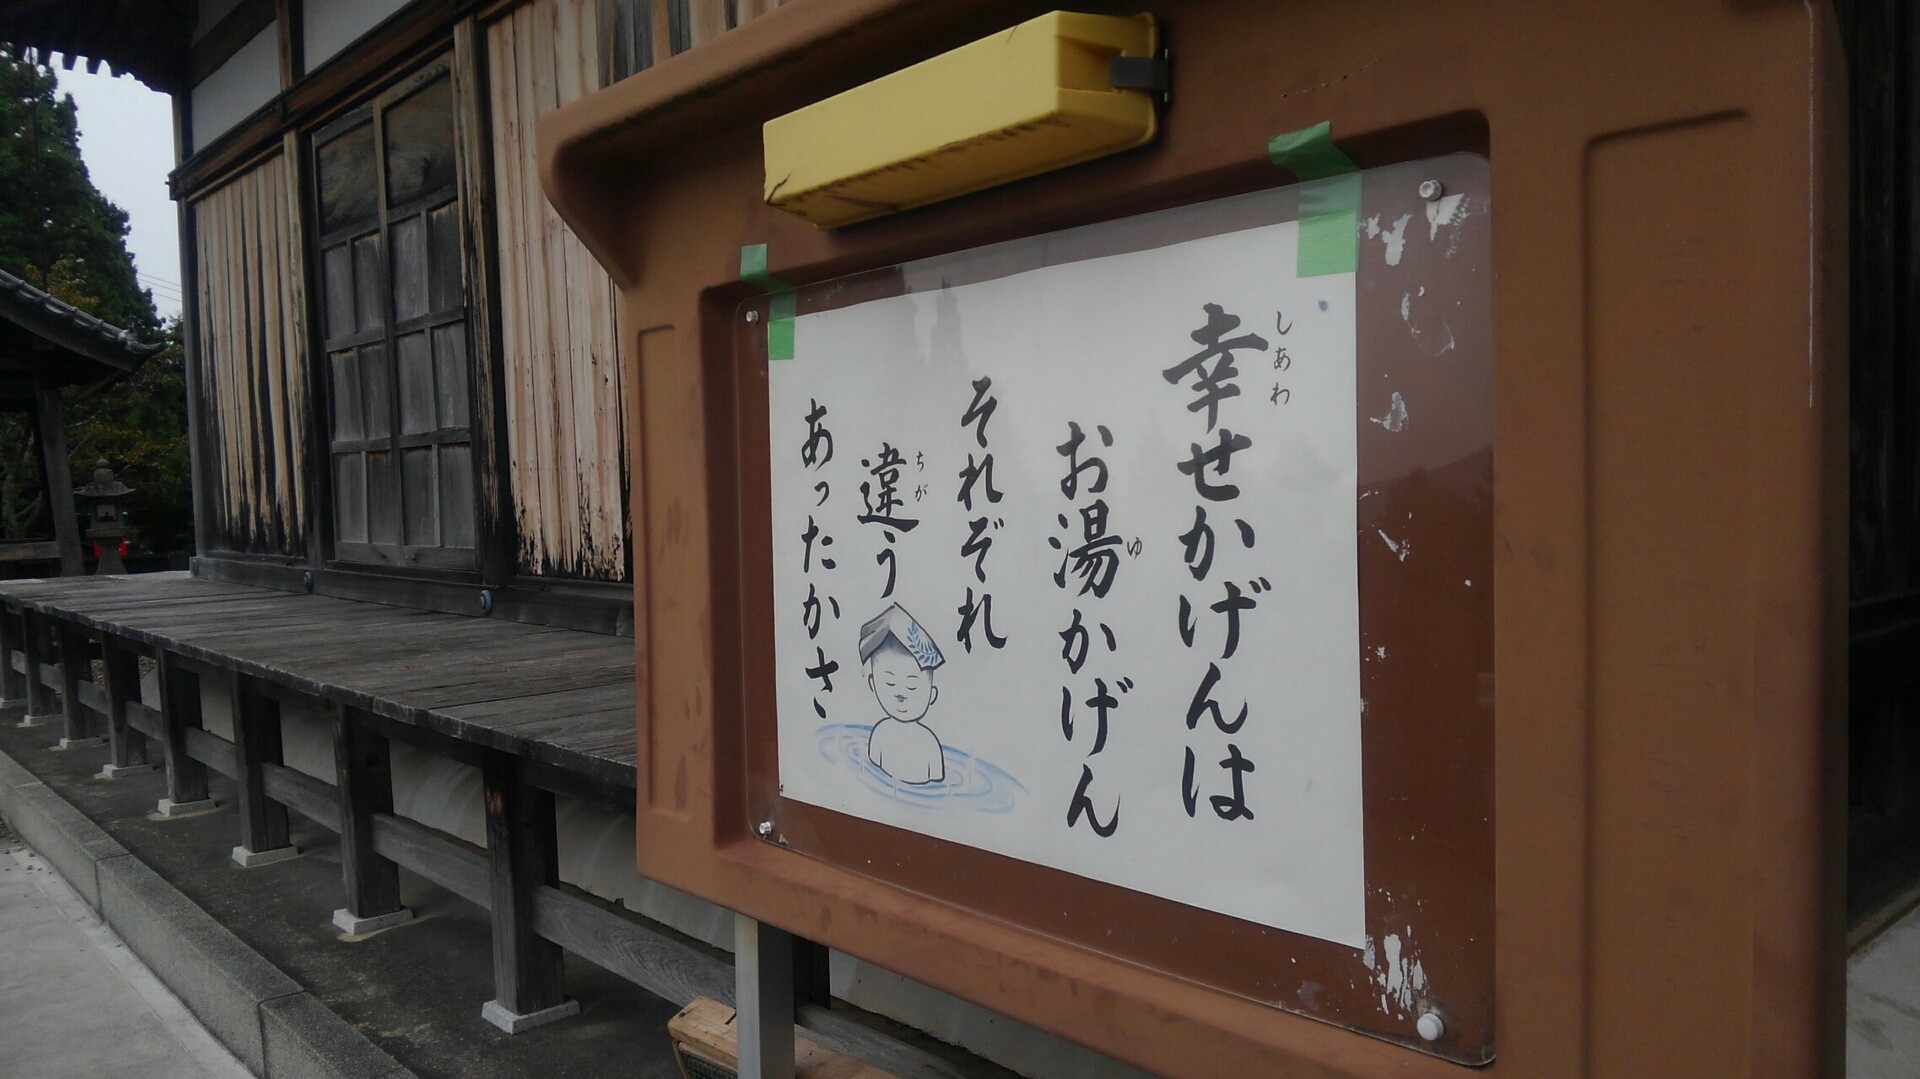 幸せかげんは
しあわ
お湯かげん
ゆ
それぞれ
違う
ちが
あったかさ